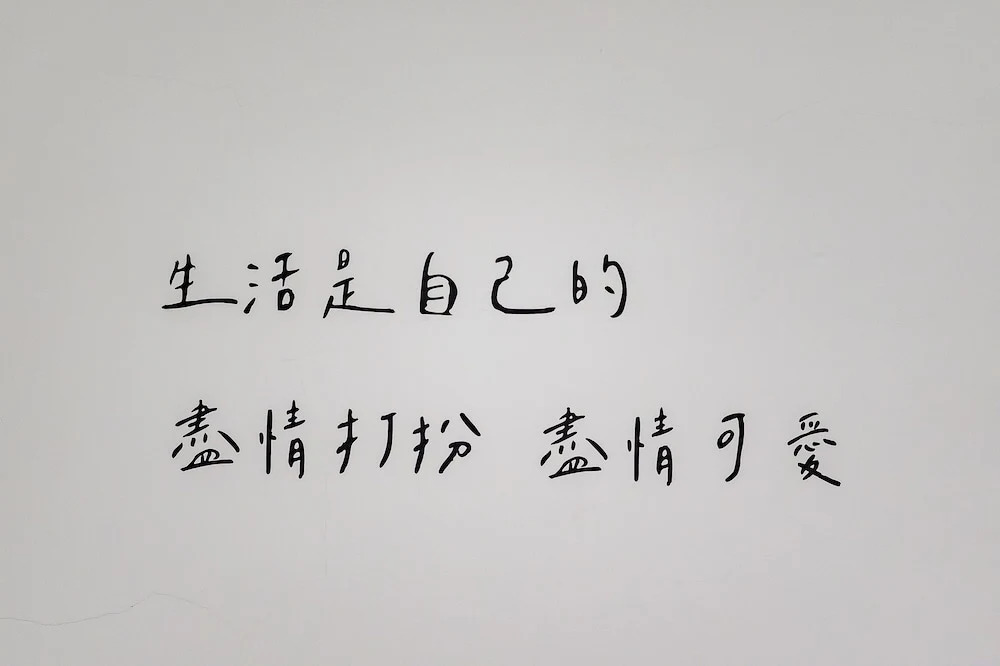 生活是自己的
盡情打扮 盡情可愛